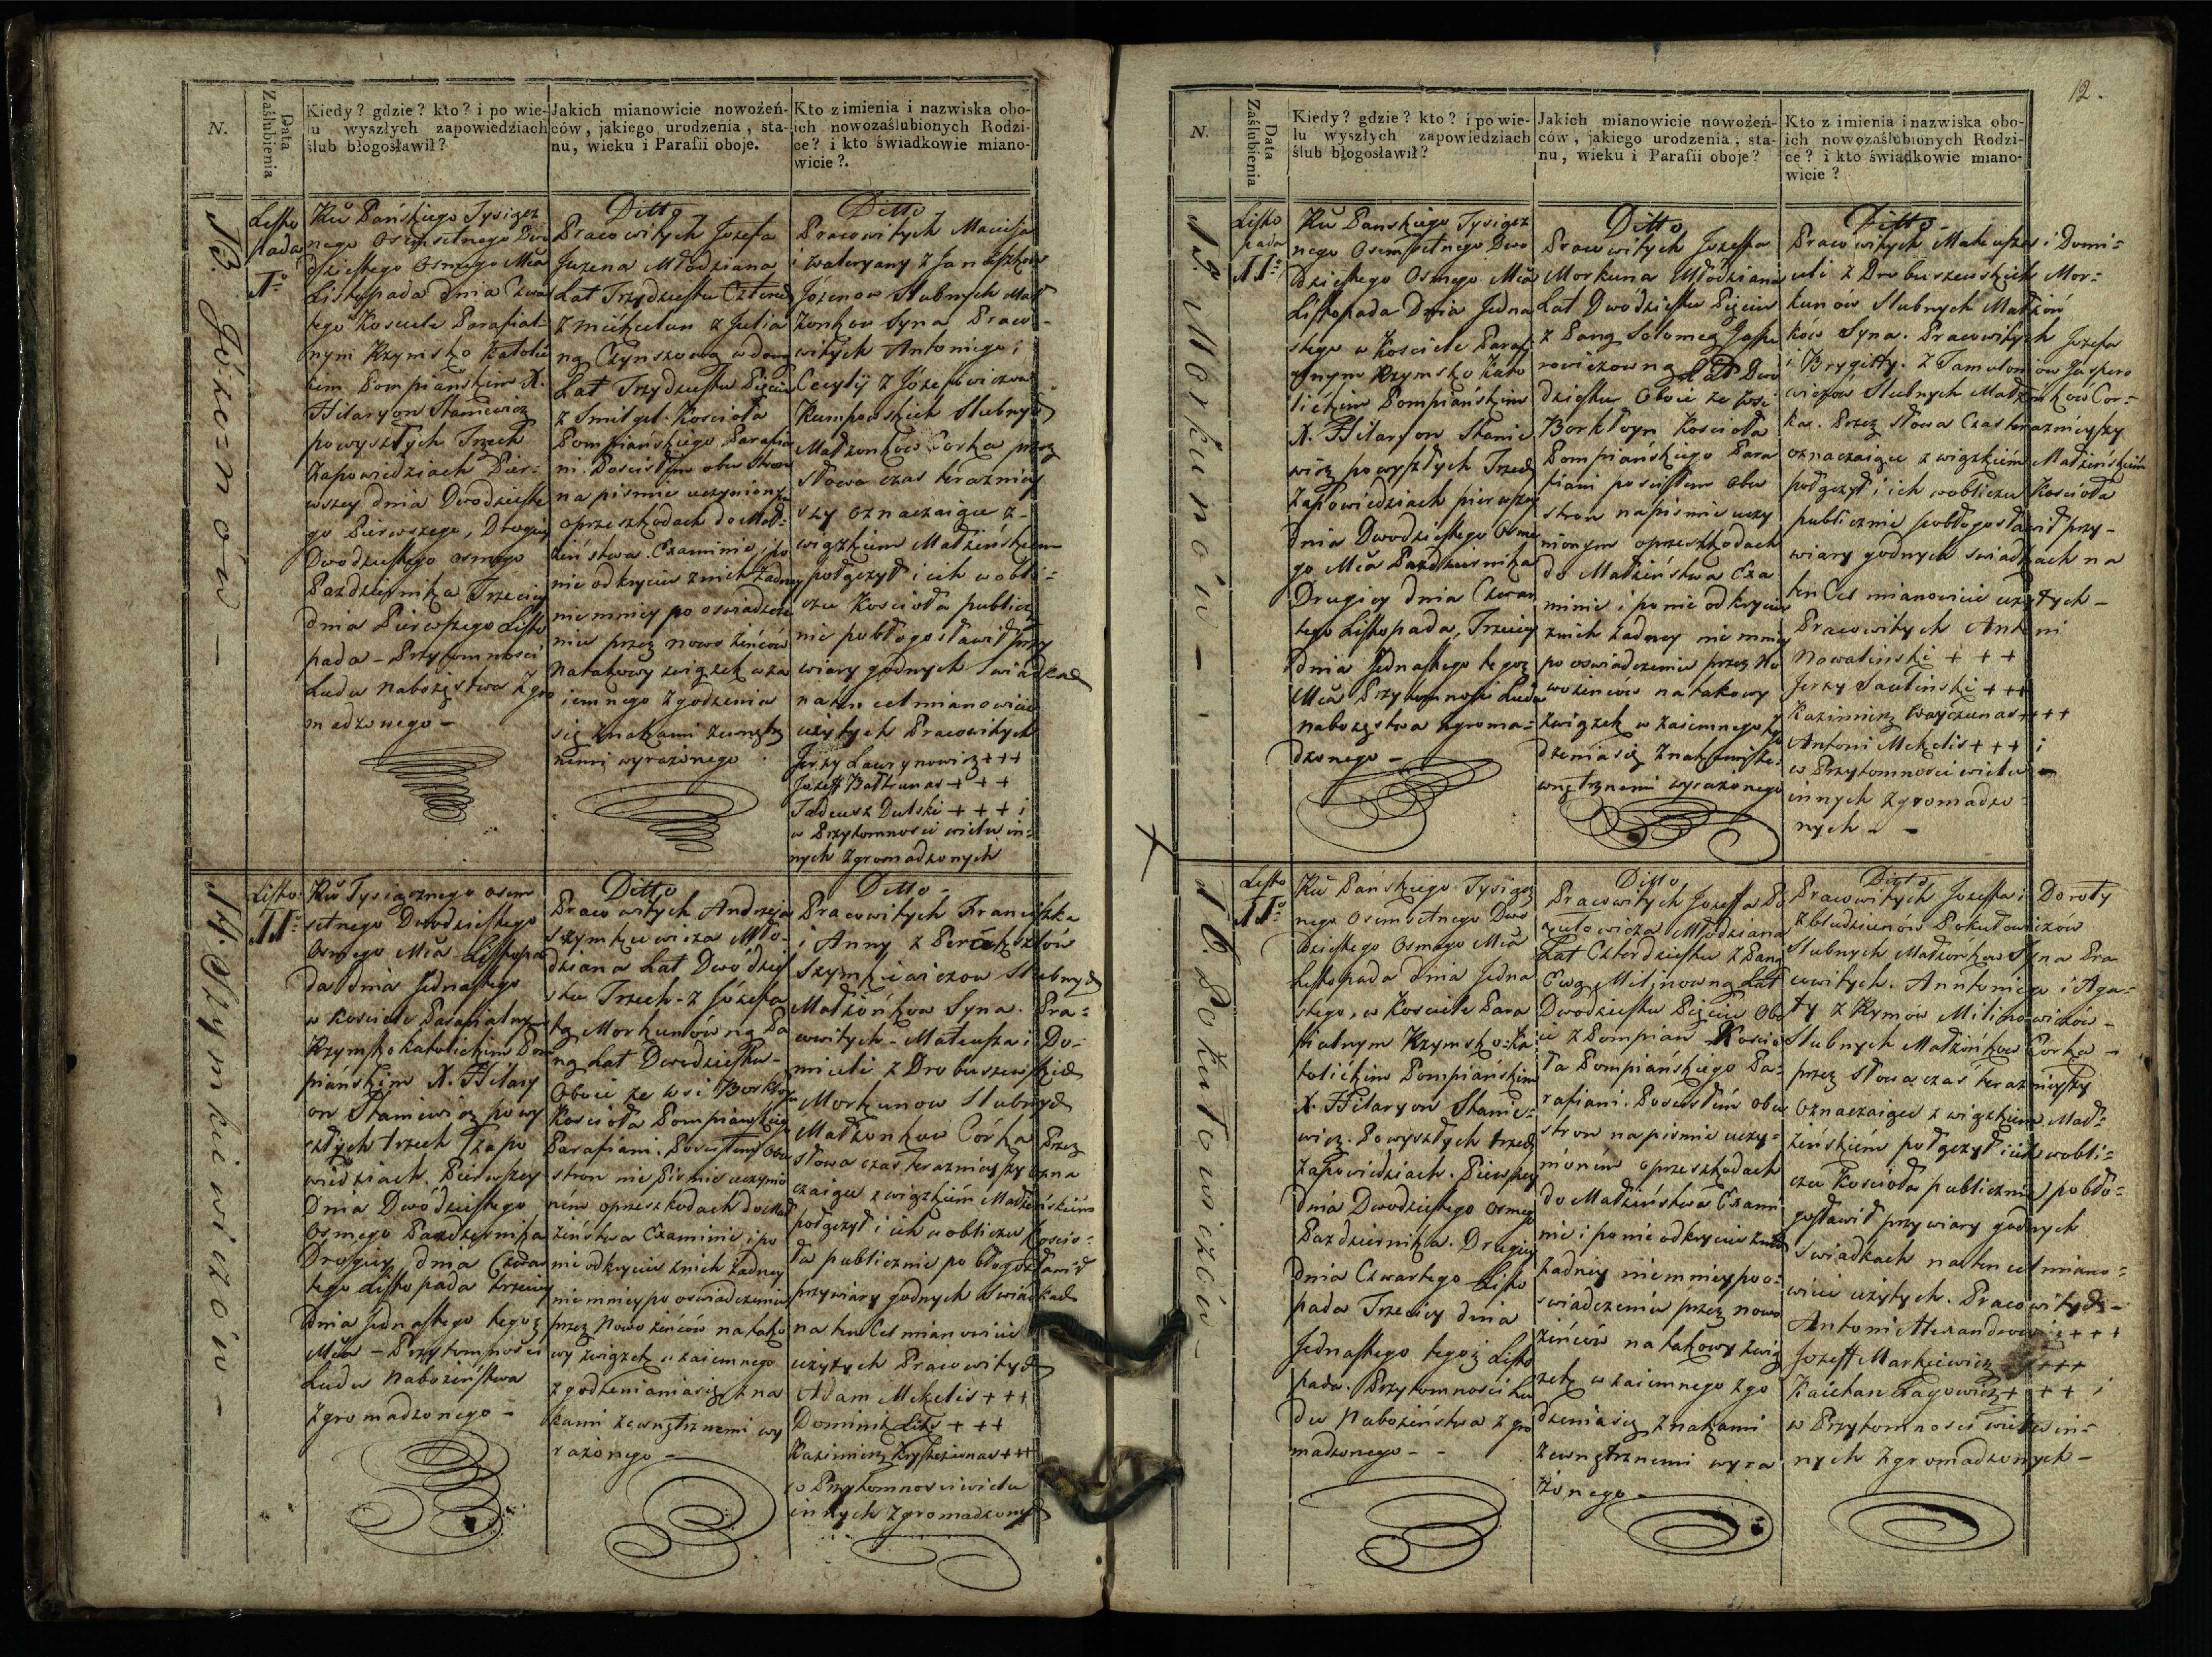 N.
Data
Zaślubienia
Kiedy? gdzie? kto? i po wie-
lu wyszłych zapowiedziach
ślub błogosławił?
Jakich mianowicie nowożeń-
ców, jakiego urodzenia, sta-
nu, wieku i Parafii oboje.
Kto z imienia i nazwiska obo-
ich nowozaślubionych Rodzi-
ce? i kto świadkowie miano-
wicie?
13. Józenow —
Listo
pada
Ru Pańskiego Tysiącz
nego Osmsetnego Dwu
dziestego Osmego Mca
Listopada dnia Czwar
tego Kosciele Parafial-
nym Rzymsko Katolic
kim Pompiańskim X.
Hilaryon Staniewicz
po wyszłych Trzech
Zapowiedziach Pier-
wszey dnia Dwodzieste
go Pierwszego, Drugiey
Dwodziestego Osmego
Pazdziernika Trzeciey
dnia Pierwszego Listo
pada - Przytomnosci
Ludu Nabożęstwa Zgro
madzonego -
Ditto
Pracowitych Jozefa
Juzena Młodziana
Lat Trzydziestu Czterech
z Julia
ną Czynszową wdową
Lat Trzydziestu Pięciu
z Smilgel. Kosciola
Pompiańskiego Parafia
ni. Poscisłym obu stron
na pismie uczynionym
oprzeszkodach do Mał-
żeństwa Examinie, i po
nie odkryciu z nich żadney
niemniey po oswiadcze
niu przez nowożeńców
na takowy związek wza
iemnego Zgodzenia
się Znakami zewnętrz
nemi wyrażonego
Ditto
Pracowitych Macieja
i Waleryany z Januszkow
Józenow Slubnych Mał
żonkow Syna Praco-
witych Antoniego i
Cecylij z Józefowiczow
Rumpowskich Slubnych
Małżonków Corka przez
słowa czas terazniey
szy oznaczaiące z-
wiązkiem Małżeńskiem
połączył i ich w obli-
czu Kosciola publicz
nie pobłogosławił przy
wiary godnych Swiadkach
na ten cel mianowicie
użytych Pracowitych
Jerzy Lawrynowicz +++
Jozeff Baltrunas +++
Tadeusz Dulski +++ i
w Przytomnosci wielu in-
nych Zgromadzonych
14. Szymkiewiczow -
Listo:
11°
Ru Tysiącznego osm
setnego Dwodziestego
Osmego Mca Listopa
da dnia Jednastego
w Kosciele Parafialnym
Rzymsko katolickim Pom
piańskim X. Hilary
on Staniewicz po wy
szłych trzech Zapo
wiedziach. Pierwszey
Dnia Dwódziestego
Osmego Pazdziernika
Drugiey dnia Czwar
tego Listopada trzeciey
Dnia Jednastego tegoz
Mca - Przytomnosci
Ludu Nabożeństwa
Zgromadzonego -
Ditto
Pracowitych Andrzeja
Szymkiewicza Mło-
dziana Lat Dwódzie
stu Trzech - z Józefa
tą Morkunówną Pa
ną Lat Dwodziestu -
Oboie ze wsi Borkloyn
Kosciola Pompianskiego
Parafiani. Poscisłym Obu
stron nie Pismie uczynio
nem oprzeszkodach do Mał
żeństwa Examinie i po
nie odkryciu z nich żadney
niemniey po oswiadczeniu
przez Nowożeńców na tako
wy związek wzaiemnego
zgodzenianiasię zna
kami zewnętrznemi wy
rażonego -
Ditto -
Pracowitych Franciszka
i Anny z
Szymkiewiczow Slubnych
Małżonkow Syna. Pra-
cowitych - Mateusza i Do-
miceli z Drobuszewskich
Morkunow Slubnych
Małżonkow Córka Przez
słowa czas teraznieyszy ozna
czaiące związkiem Małżeńskim
połączył i ich w obliczu Koscio-
ła publicznie pobłogosławił
przy wiary godnych Swiadkach
na ten Cel mianowicie
użytych Pracowitych
Adam Mekelis +++
Dominik +++
Kazimierz +++
w Przytomnosci wielu
innych Zgromadzonych
12.
N.
Data
Zaślubienia
Kiedy? gdzie? kto? i po wie-
lu wyszłych zapowiedziach
ślub błogosławił?
Jakich mianowicie nowożeń-
ców, jakiego urodzenia, sta-
nu, wieku i Parafii oboje?
Kto z imienia i nazwiska obo-
ich nowozaślubionych Rodzi-
ce? i kto świadkowie miano-
wicie?
15. Morkunów -
Listo
pada
11°
Ru Panskiego Tysiącz
nego Osemsetnego Dwo
dziestego Osmego Mca
Listopada Dnia Jedna
stego w Kosciele Parafi
alnym Rzymsko Kato
lickim Pompiańskim
X. Hilaryon Stanie
wicz po wyszłych Trzech
Zapowiedziach pierwszey
Dnia Dwodziestego Osme
go Mca Pazdziernika
Drugiey dnia Czwar
tego Listopada, Trzeciey
dnia Jednastego tegoz
Mca Przytomnosci Ludu
nabożęstwa zgroma-
dzonego -
Ditto
Pracowitych Jozeffa
Morkuna Młodziana
Lat Dwódziestu Pięciu
z Panną Solomeą Jaspe
rowiczowną Lat Dwo
dziestu Oboie ze wsi
Borkloyn Kosciola
Pompiańskiego Para
fiani poscisłem obu
stron na pismie uczy
nionym oprzeszkodach
do Małżeństwa Exa
minie i po nie odkryciu
z nich żadney niemniey
po oswiadczeniu przez No
wożeńców na takowy
związek w zaiemnego Zgo
dzeniasię Znakamize-
wnętrznemi wyrażonego
Ditto -
Pracowitych Mateusza i Domi-
celi z Drobuszewskich Mor-
kunów Slubnych Małżon
kow Syna. Pracowitych Jozefa
i Brygitty. z Tamulon iów Jaspero
wiczów Slubnych Małżonków Cor-
ka. Przez słowa Czas teraznieyszy
oznaczaiące związkiem Małżeńskiem
połączył i ich w obliczu Kosciola
publicznie pobłogosławił przy -
wiary godnych swiadkach na
ten Cel mianowicie użytych -
Pracowitych Antoni
Nowalinski +++
Jerzy Saulinski +++
Kazimierz Wayczunas +++
Antoni Mekelis +++ i
w Przytomnosci wielu -
innych zgromadzo-
nych - -
16. Pokutowiczów -
Listo
11°
Ru Pańskiego Tysiącz
nego Osemsetnego Dwo
dziestego Osmego Mca
Listopada dnia Jedna
stego, w Kosciele Para
fialnym Rzymsko-Ka
tolickim Pompiańskim
X. Hilaryon Stanie-
wicz. Po wyszłych trzech
Zapowiedziach. Pierwszey
dnia Dwodziestego Osmego
Pazdziernika. Drugiey
dnia Czwartego Listo
pada Trzeciey dnia
Jednastego tegoż Listo
pada. Przytomnosci Lu
du Nabożeństwa zgro
madzonego - -
Ditto
Pracowitych Jozeffa Po
kutowicza Młodziana
Lat Cztordziestu z Panną
Ewą Milinowną Lat
Dwodziestu Pięciu Obo
ie z Pompian Koscio
ła Pompiańskiego Pa-
rafiani. Poscisłem obu
stron na pismie uczy-
nionem oprzeszkodach
do Małżeństwa Exami
nie i po nie odkryciu z nich
żadney niemniey po o-
swiadczeniu przez nowo
żeńców na takowy zwią
zek w zaiemnego zgo
dzeniasię znakami
Zewnętrznemi wyra
żonego -
Ditto
Pracowitych Jozeffa i Doroty
z Pokutowiczów
Slubnych Małżonkow Syna Pra
cowitych. Anntoniego i Aga-
ty z Rymów Milinowiczów -
Slubnych Małżonkow Corka -
przez słowa czas teraznieyszy
Oznaczaiące związkiem Mał-
żeńskiem połączył i ich w obli-
czu Kosciola publicznie pobło-
gosławił przy wiary godnych
Swiadkach na ten cel miano-
wicie użytych. Pracowitych -
Antoni +++
Jozeff Markiewicz +++
Kaietan Łagowicz +++ i
w Przytomnosci wielu in-
nych Zgromadzonych -